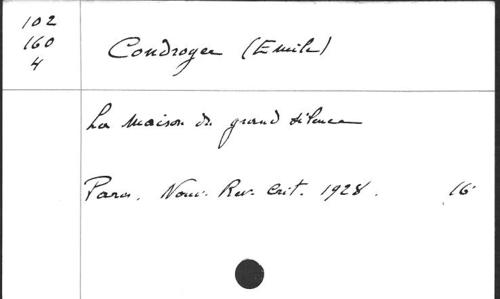 102
160
4
Condroyer (Emile)
La Maison du grand silence
Paris, Nouv. Rev. Crit. 1928. 16°